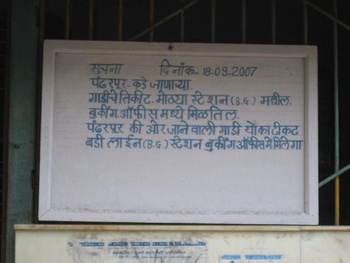 सूचना दिनाँक-18-09-2007
पंढरपूर-कडे जाणाऱ्या.
गाडीचे तिकीट. मोठ्या स्टेशन (B.G) मधील.
बुकींग ऑफीस मध्ये मिळतिल.
पंढरपूर की ओर जाने वाली गाडी यों का टीकट
बडी लाईन (B.G) स्टेशन बुकींग ऑफीस में मिलेगा